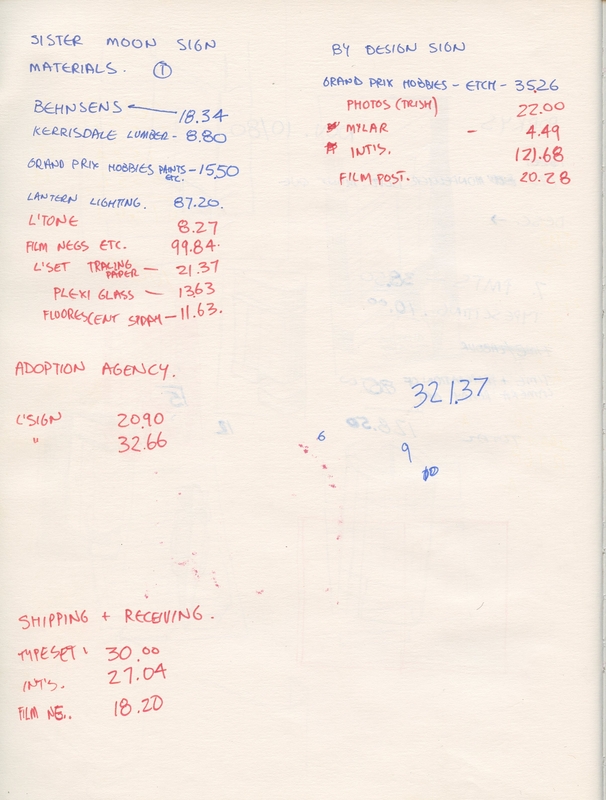 SISTER MOON SIGN
MATERIALS. ①
BEHNSENS 18.34
KERRISDALE LUMBER - 8.80
GRAND PRIX HOBBIES PAINTS ETC. - 15.50
LANTERN LIGHTING. 87.20.
L'TONE 8.27
FILM NEGS ETC. 99.84.
L'SET TRACING PAPER - 21.37
PLEXI GLASS - 13.63
FLUORESCENT - 11.63.
ADOPTION AGENCY.
L'SIGN 20.90
" 32.66
SHIPPING + RECEIVING.
TYPESET: 30.00
INT'S. 27.04
FILM NE.. 18.20
BY DESIGN SIGN
GRAND PRIX HOBBIES - ETCH - 35.26
PHOTOS (TRISH) 22.00
MYLAR - 4.49
INT'S. 121.68
FILM POST. 20.28
321.37
6
9
10